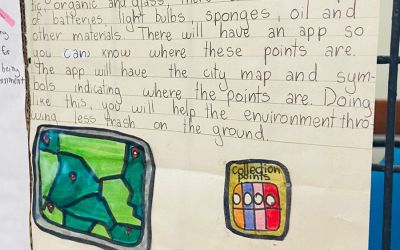 organic and glass.
of batteries, light bulbs, sponges, oil and
other materials. There will have an app so
you can know where these points are.
The app will have the city map and sym-
bols indicating where the points are. Doing
like this, you will help the environment thro-
wing less trash on the ground.
collection
points
for
being